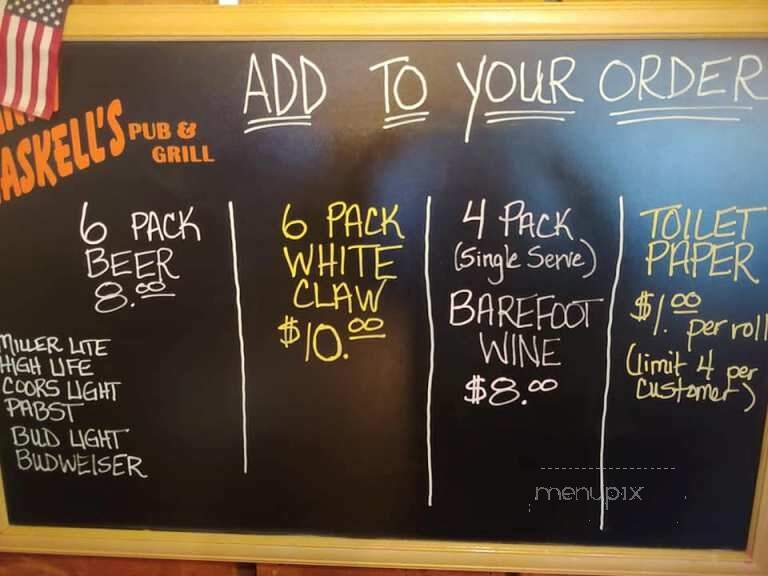 ADD TO YOUR ORDER
PUB &
GRILL
6 PACK
BEER
8.00
MILLER LITE
HIGH LIFE
COORS LIGHT
PABST
BUD LIGHT
BUDWEISER
6 PACK
WHITE
CLAW
$10.00
4 PACK
(Single Serve)
BAREFOOT
WINE
$8.00
TOILET
PAPER
$1.00
per roll
(limit 4 per
customer)
menupix